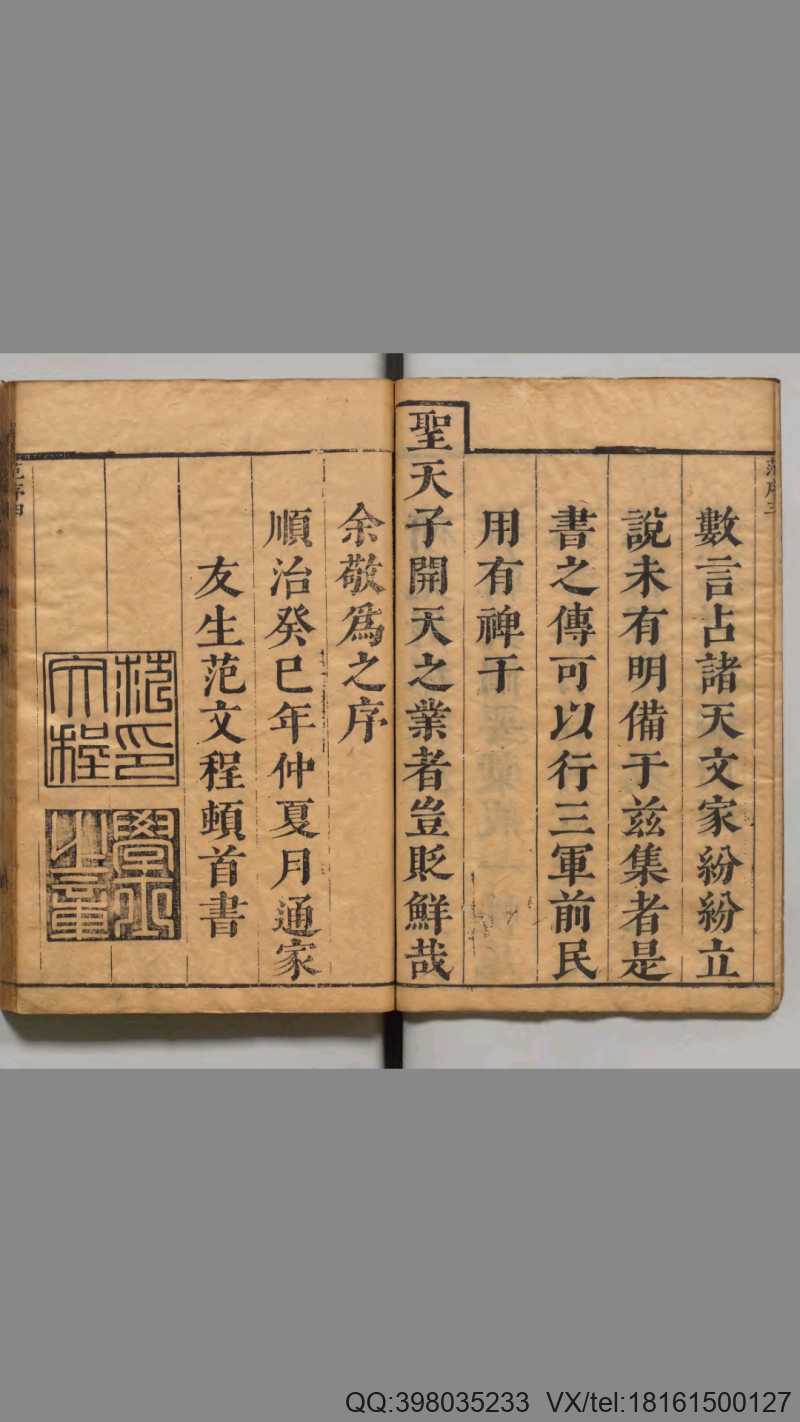 數言占諸天文家紛紛立
說未有明備于兹集者是
書之傳可以行三軍前民
用有裨于
聖天子開天之業者豈貶鮮哉
余敬爲之序
順治癸巳年仲夏月通家
友生范文程頓首書
范印
文程
之章
范序三
QQ:398035233 VX/tel:18161500127